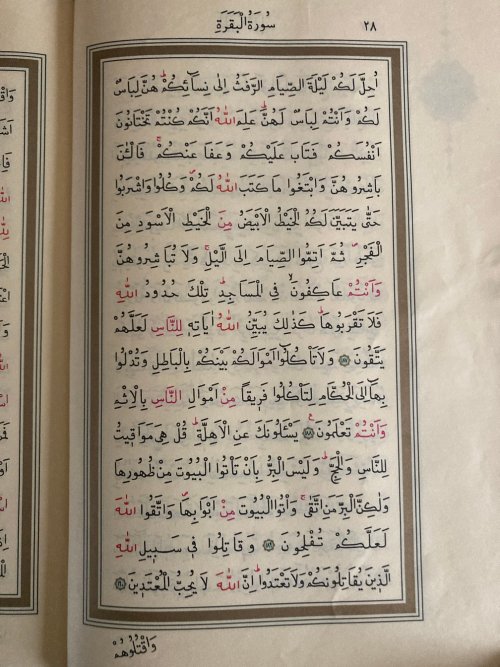 ٢٨
سُورَةُ الْبَقَرَةِ
اُحِلَّ لَكُمْ لَيْلَةَ الصِّيَامِ الرَّفَثُ اِلٰى نِسَٓائِكُمْۜ هُنَّ لِبَاسٌ
لَكُمْ وَاَنْتُمْ لِبَاسٌ لَهُنَّۜ عَلِمَ اللّٰهُ اَنَّكُمْ كُنْتُمْ تَخْتَانُونَ
اَنْفُسَكُمْ فَتَابَ عَلَيْكُمْ وَعَفَا عَنْكُمْۚ فَالْـٰٔنَ
بَاشِرُوهُنَّ وَابْتَغُوا مَا كَتَبَ اللّٰهُ لَكُمْۖ وَكُلُوا وَاشْرَبُوا
حَتّٰى يَتَبَيَّنَ لَكُمُ الْخَيْطُ الْاَبْيَضُ مِنَ الْخَيْطِ الْاَسْوَدِ مِنَ
الْفَجْرِۖ ثُمَّ اَتِمُّوا الصِّيَامَ اِلَى الَّيْلِۚ وَلَا تُبَاشِرُوهُنَّ
وَاَنْتُمْ عَاكِفُونَۙ فِي الْمَسَاجِدِۜ تِلْكَ حُدُودُ اللّٰهِ
فَلَا تَقْرَبُوهَاۜ كَذٰلِكَ يُبَيِّنُ اللّٰهُ اٰيَاتِه۪ لِلنَّاسِ لَعَلَّهُمْ
يَتَّقُونَ ﴿١٨٧﴾ وَلَا تَأْكُلُٓوا اَمْوَالَكُمْ بَيْنَكُمْ بِالْبَاطِلِ وَتُدْلُوا
بِهَٓا اِلَى الْحُكَّامِ لِتَأْكُلُوا فَر۪يقًا مِنْ اَمْوَالِ النَّاسِ بِالْاِثْمِ
وَاَنْتُمْ تَعْلَمُونَ۟ ﴿١٨٨﴾ يَسْـَٔلُونَكَ عَنِ الْاَهِلَّةِۜ قُلْ هِيَ مَوَاق۪يتُ
لِلنَّاسِ وَالْحَجِّۜ وَلَيْسَ الْبِرُّ بِاَنْ تَأْتُوا الْبُيُوتَ مِنْ ظُهُورِهَا
وَلٰكِنَّ الْبِرَّ مَنِ اتَّقٰىۚ وَأْتُوا الْبُيُوتَ مِنْ اَبْوَابِهَاۖ وَاتَّقُوا اللّٰهَ
لَعَلَّكُمْ تُفْلِحُونَ ﴿١٨٩﴾ وَقَاتِلُوا ف۪ي سَب۪يلِ اللّٰهِ
الَّذ۪ينَ يُقَاتِلُونَكُمْ وَلَا تَعْتَدُواۜ اِنَّ اللّٰهَ لَا يُحِبُّ الْمُعْتَد۪ينَ ﴿١٩٠﴾
وَاقْتُلُوهُمْ